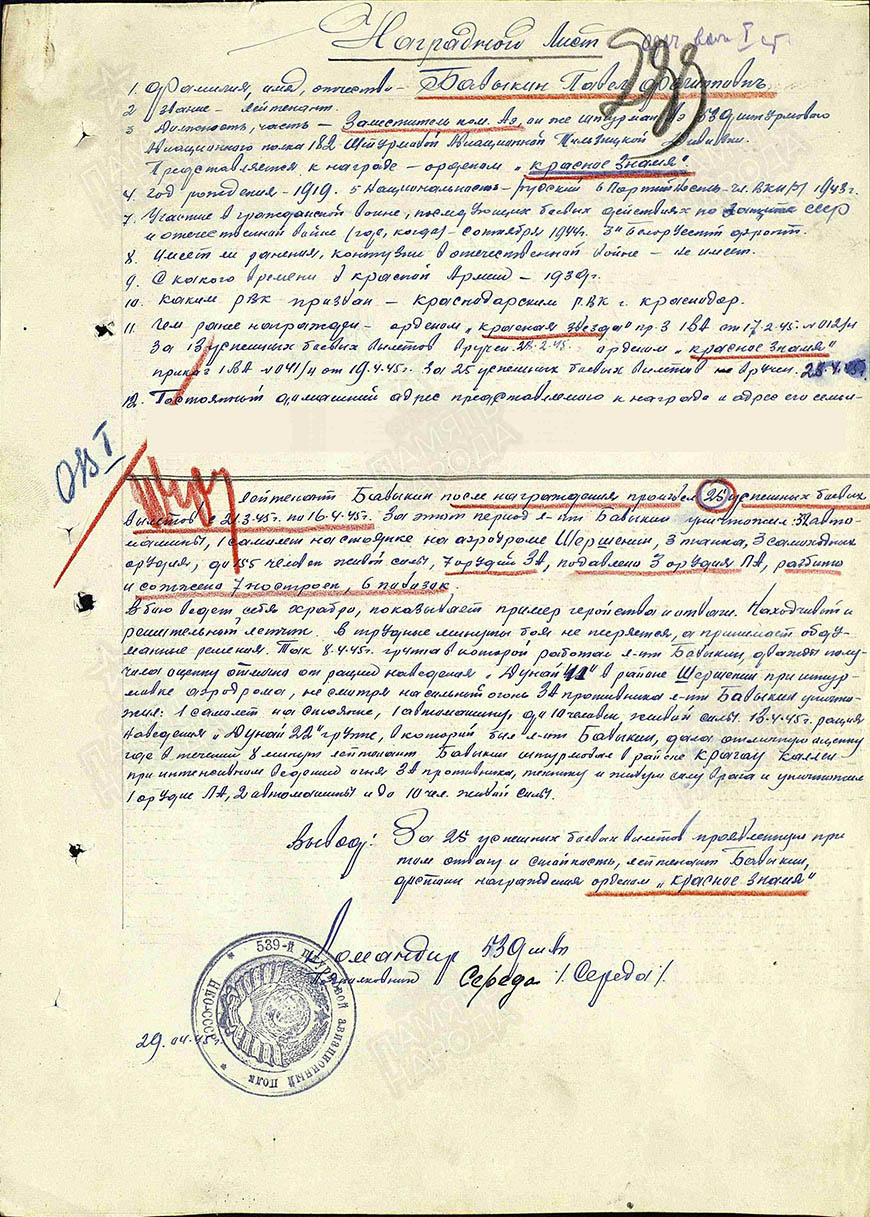 Наградной Лист
1. Фамилия, имя, отчество – Бавыкин Павел
2 Звание – лейтенант.
3 Должность, часть – Заместитель ком. АЭ, он же штурман АЭ 539 штурмового
Авиационного полка 182 Штурмовой Авиационной Тильзитской дивизии.
Представляется к награде – орденом „красное Знамя"
4. год рождения – 1919. 5 Национальность – русский 6 Партийность – чл. ВКП/б/ 1943 г.
7. Участие в гражданской войне, последующих боевых действиях по защите СССР
и отечественной войне (где, когда) – с октября 1944г. 3й Белорусский фронт.
8 Имеет ли ранения, контузии в отечественной войне – не имеет.
9. С какого времени в красной Армии – 1939г.
10. каким РВК призван – Краснодарским ГВК г. Краснодар.
11. Чем ранее награжден – орденом „красная звезда" пр. 3 1ВА от 17.2.45. № 012/н
За 13 успешных боевых вылетов вручен 2.45. орденом „красное знамя"
приказ 1ВА № 041/н от 19.4.45г. За 25 успешных боевых вылетов не вручен. 28.4.45г.
12. Постоянный домашний адрес представляемого к награде и адрес его семьи –
ПАМЯТЬ НАРОДА
лейтенант Бавыкин после награждения произвел 25 успешных боевых
вылетов с 21.3.45г. по 16.4.45г. За этот период л-нт Бавыкин уничтожил: 32 авто-
машины, 1 самолет на стоянке на аэродроме Шершении, 3 танка, 3 самоходных
орудия, до 155 человек живой силы, 7 орудий ЗА, подавлено 3 орудия ПА, разбито
и сожжено 7 построек, 6 повозок
В бою ведет себя храбро, показывает пример геройства и отваги. Находчивый и
решительный летчик. В трудные минуты боя не теряется, а принимает обду-
манные решения. Так 8.4.45г. группа в которой работал л-нт Бавыкин, дважды полу-
чила оценку отлично от рации наведения „Дунай 11" в районе Шершении при штур-
мовке аэродрома, не смотря на сильный огонь ЗА противника л-нт Бавыкин уничто-
жил: 1 самолет на стоянке, 1 автомашину, до 10 человек живой силы. 13.4.45г. рация
наведения „Дунай 22" группе, в которой был л-нт Бавыкин, дала отличную оценку
где в течении 8 минут лейтенант Бавыкин штурмовал в районе
при интенсивном ведении огня ЗА противника, технику и живую силу врага и уничтожил
1 орудие ПА, 2 автомашины и до 10 чел. живой силы.
Вывод: За 25 успешных боевых вылетов проявленную при
том отвагу и стойкость, лейтенант Бавыкин,
достоин награждения орденом „красное знамя"
Командир 539 шап
Подполковник Середа /Середа/.
539-й штурмовой авиационный полк
НКО-СССР
29.04.45г.